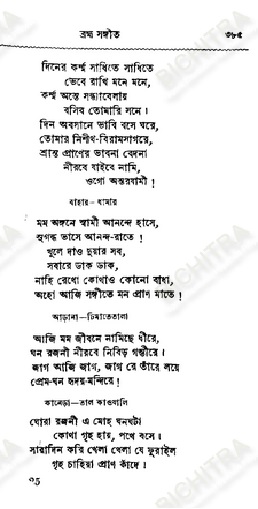 ব্রহ্ম সঙ্গীত ৩৮৫
দিনের কর্ম্ম সাধিতে সাধিতে
ভেবে রাখি মনে মনে,
কর্ম্ম অন্তে সন্ধ্যাবেলায়
বসিব তোমারি সনে।
দিন অবসানে ভাবি বসে ঘরে,
তোমার নিশীথ-বিরামসাগরে,
শ্রান্ত প্রাণের ভাবনা বেদনা
নীরবে যাইবে নামি,
ওগো অন্তরযামী !
বাহার–ধামার
মম অঙ্গনে স্বামী আনন্দে হাসে,
সুগন্ধ ভাসে আনন্দ-রাতে !
খুলে দাও দুয়ার সব,
সবারে ডাক ডাক,
নাহি রেখো কোথাও কোনো বাধা,
অহো আজি সঙ্গীতে মন প্রাণ মাতে !
আড়ানা–ঢিমাতেতালা
আজি মম জীবনে নামিছে ধীরে,
ঘন রজনী নীরবে নিবিড় গম্ভীরে।
জাগ আজি জাগ, জাগ রে তাঁরে লয়ে
প্রেম-ঘন হৃদয়-মন্দিরে !
কানেড়া–তাল কাওয়ালি
ঘোরা রজনী এ মোহ ঘনঘটা
কোথা গৃহ হায়, পথে বসে।
সারাদিন করি খেলা খেলা যে ফুরাইল
গৃহ চাহিয়া প্রাণ কাঁদে।
BICHITRA